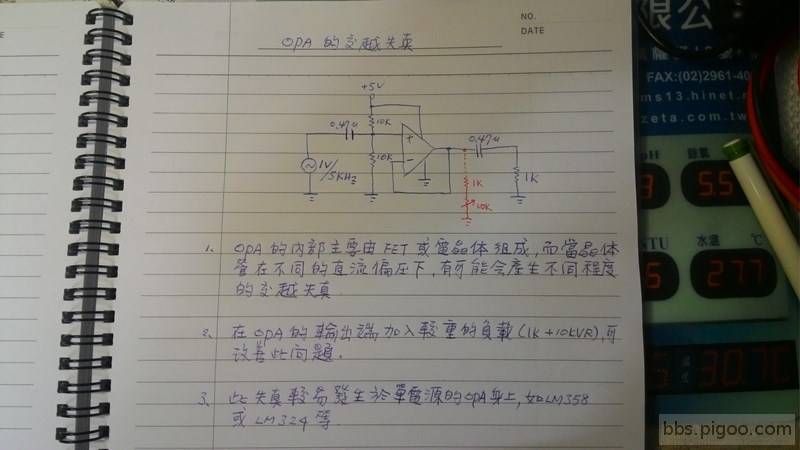 NO.
DATE
OPA 的交越失真
+5V
10K
0.47u
10K
1V/5KHz
+
-
0.47u
1K
10K
1K
1. OPA 的內部主要由 FET 或電晶体組成,而當晶体
管在不同的直流偏压下,有可能会產生不同程度
的交越失真.
2. 在 OPA 的輸出端加入較重的負載(1K+10KVR),可
改善此问題.
3. 此失真較易發生於單電源的OPA身上,如LM358
或 LM324 等.
限公
FAX:(02)2961-40
ms13.hinet.n
zeta.com.tw
pH
餘氯
5.5
TU
水温
℃
27.7
30.7C
bbs.pigoo.com